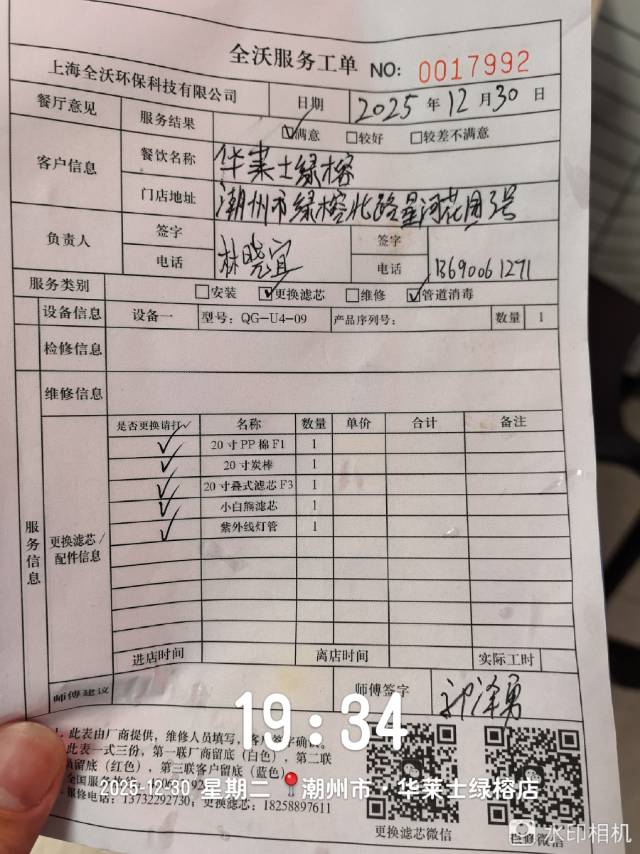 全沃服务工单 NO: 0017992
上海全沃环保科技有限公司 日期 2025 年 12 月 30 日
餐厅意见 服务结果 ☑满意 □较好 □较差不满意
客户信息 餐饮名称 华莱士绿榕
门店地址 潮州市绿榕北路星河花园3号
负责人 签字 林晓宜 签字
电话 电话 13690061271
服务类别 □安装 ☑更换滤芯 □维修 ☑管道消毒
设备信息 设备一 型号: QG-U4-09 产品序列号: 数量 1
检修信息
维修信息
服务信息
更换滤芯/配件信息
是否更换请打✓ 名称 数量 单价 合计 备注
✓ 20寸PP棉F1 1
✓ 20寸炭棒 1
✓ 20寸叠式滤芯F3 1
✓ 小白熊滤芯 1
✓ 紫外线灯管 1
进店时间 离店时间 实际工时
师傅建议 师傅签字
19:34
此表由厂商提供,维修人员填写,客户签字确认。
此表一式三份,第一联厂商留底(白色),第二联
留底(红色),第三联客户留底(蓝色)
全国服务
2025-12-30 星期二 潮州市·华莱士绿榕店
维修电话:13732292730;更换滤芯:18258897611
更换滤芯微信 维修微信
水印相机